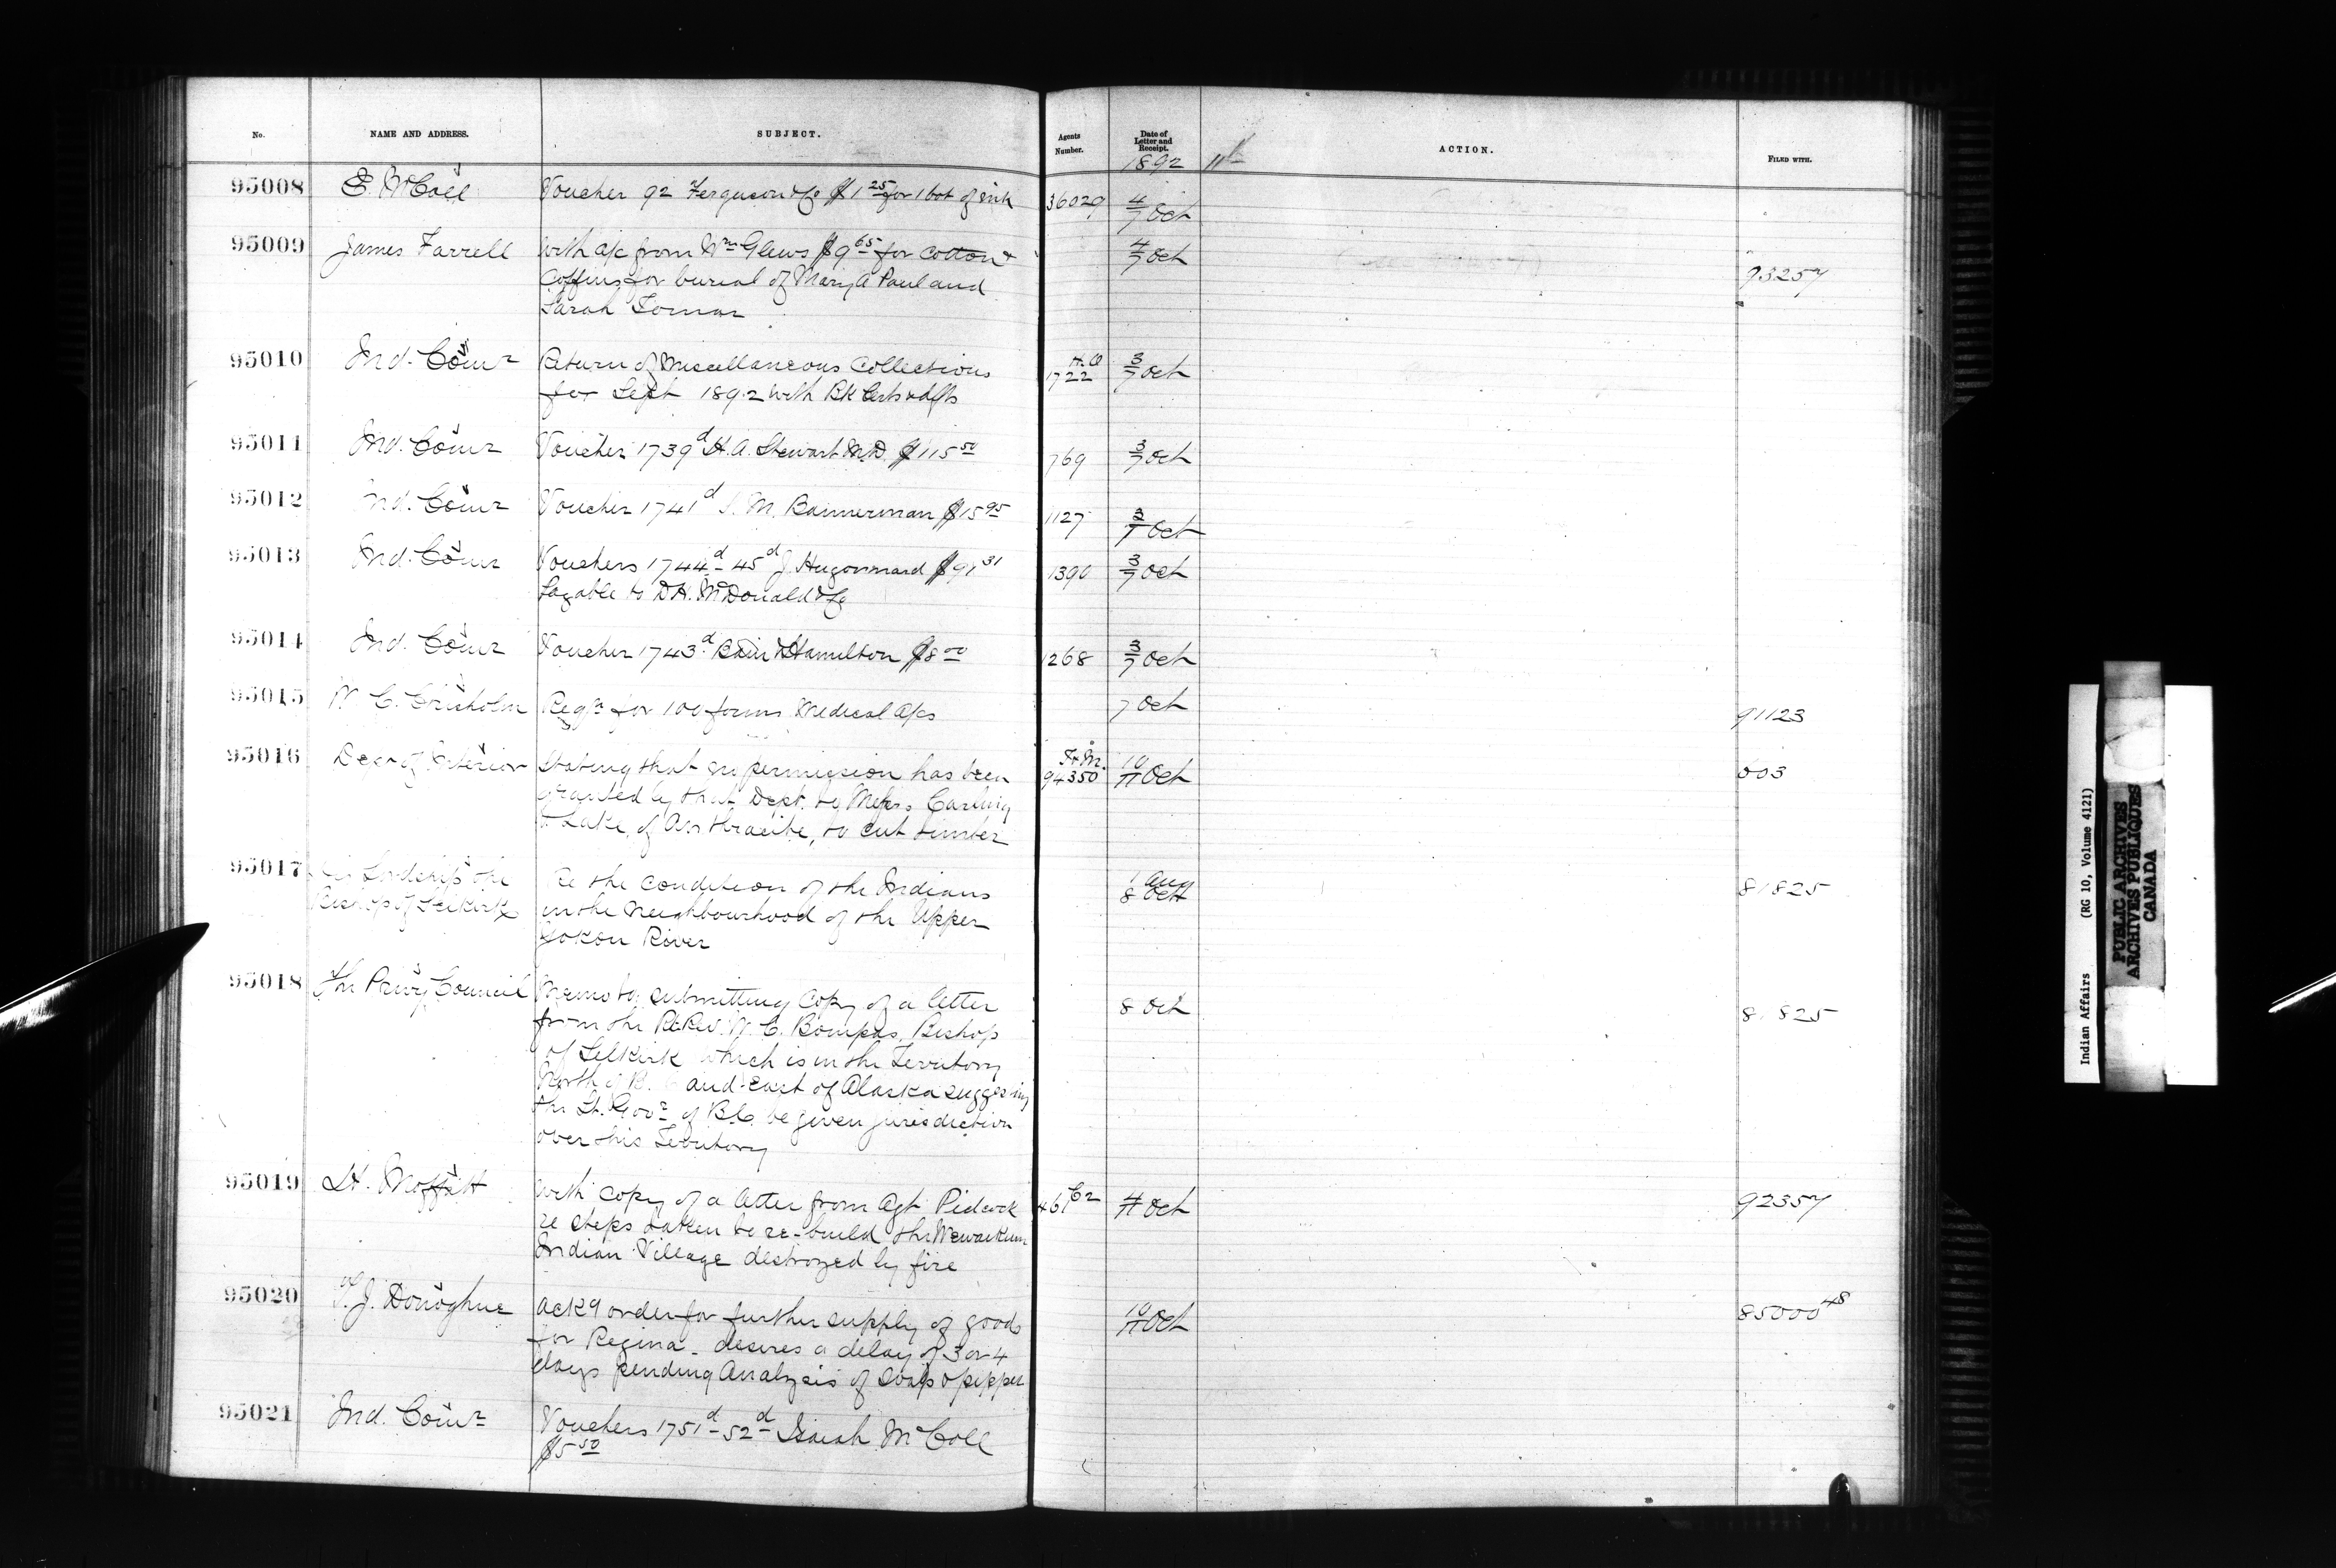 No. NAME AND ADDRESS. SUBJECT. Agents Number. Date of Letter and Receipt. ACTION. FILED WITH.
1892 11th
95008 E. McColl Voucher 92 Ferguson & Co $1 25 for 1 bot of ink 36029 4/7 Oct
95009 James Farrell With a/c from Wm Glews $9 65 for Cotton & 4/7 Oct 93257
Coffins for burial of Mary A Paul and
Sarah Tomar
95010 Ind. Comr Return of Miscellaneous Collections H.O 1722 3/7 Oct
for Sept 1892 with Bk Certs & dfts
95011 Ind. Comr Voucher 1739d H. A. Stewart M.D. $115 50 769 3/7 Oct
95012 Ind. Comr Voucher 1741d S. M. Bannerman $15 95 1127 3/7 Oct
95013 Ind. Comr Vouchers 1744d - 45d J. Hugonnard $91 31 1390 3/7 Oct
Payable to D.H. McDonald & Co
95014 Ind. Comr Voucher 1743d Bain & Hamilton $8 00 1268 3/7 Oct
95015 W. C. Chisholm Reqn for 100 forms Medical a/cs 7 Oct 91123
95016 Dept of Interior Stating that no permission has been T. & M. 94350 10/11 Oct 503
granted by that Dept. to Messrs Carling
& Lake, of Anthracite, to cut timber
95017 His Lordship the Re the condition of the Indians 1 Aug 8 Oct 81825
Bishop of Selkirk in the neighbourhood of the Upper
Yokon River
95018 The Privy Council Memo to submitting Copy of a letter 8 Oct 81825
from the Rt Rev. W. C. Bompas, Bishop
of Selkirk which is in the Territory
North of B. C and East of Alaska suggesting
the Lt. Govr of B.C. be given jurisdiction
over this Territory
95019 H. Moffatt With copy of a letter from Agt Pidcock 461 C2 4/ Oct 92357
re steps taken to re-build the Mewaikum
Indian Village destroyed by fire
95020 J. Donoghue Ackg order for further supply of goods 10/11 Oct 85000 48
for Regina - desires a delay of 3 or 4
days pending Analysis of Soap & pepper
95021 Ind. Comr Vouchers 1751d - 52d Isaiah McColl
$5 50
Indian Affairs (RG 10, Volume 4121)
PUBLIC ARCHIVES
ARCHIVES PUBLIQUES
CANADA